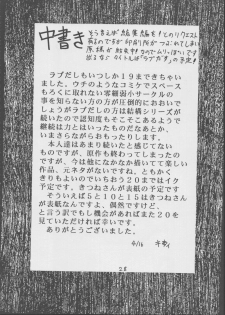 中書き
そう言えば総集編をもっとのリクエスト
有るのですが印刷所がつぶれてしまい
原版が紛失中なのでムリっぽいです
出るなら タイトルは「ラブガキ」の予定♪
ラブだしもいつしか19まできちゃい
ました。ウチのようなコミケでスペース
もろくに取れない零細弱小サークルの
事を知らない方の方が圧倒的におおいで
しょうがラブだしの方は結構シリーズが
続いたので認知度もそこそこあるようで
継続は力とはいったものだなあとか、
いまさらながらおもったりします。
本人達はあまり続いたと感じてない
ものですが、原作も終わってしまったの
ですが、今は他になかなか描いてて楽しい
作品、元ネタがないですし、ともかく
きりもよいのでいちおう20まではイク
予定です。きつねさんが表紙の予定です
そういえば5と10と15はきつねさん
が表紙なんですよ、偶然ですけど、
と言う訳でもし機会があればまた20を
見ていただければ幸いです。
ありがとうございました。
4/16
28